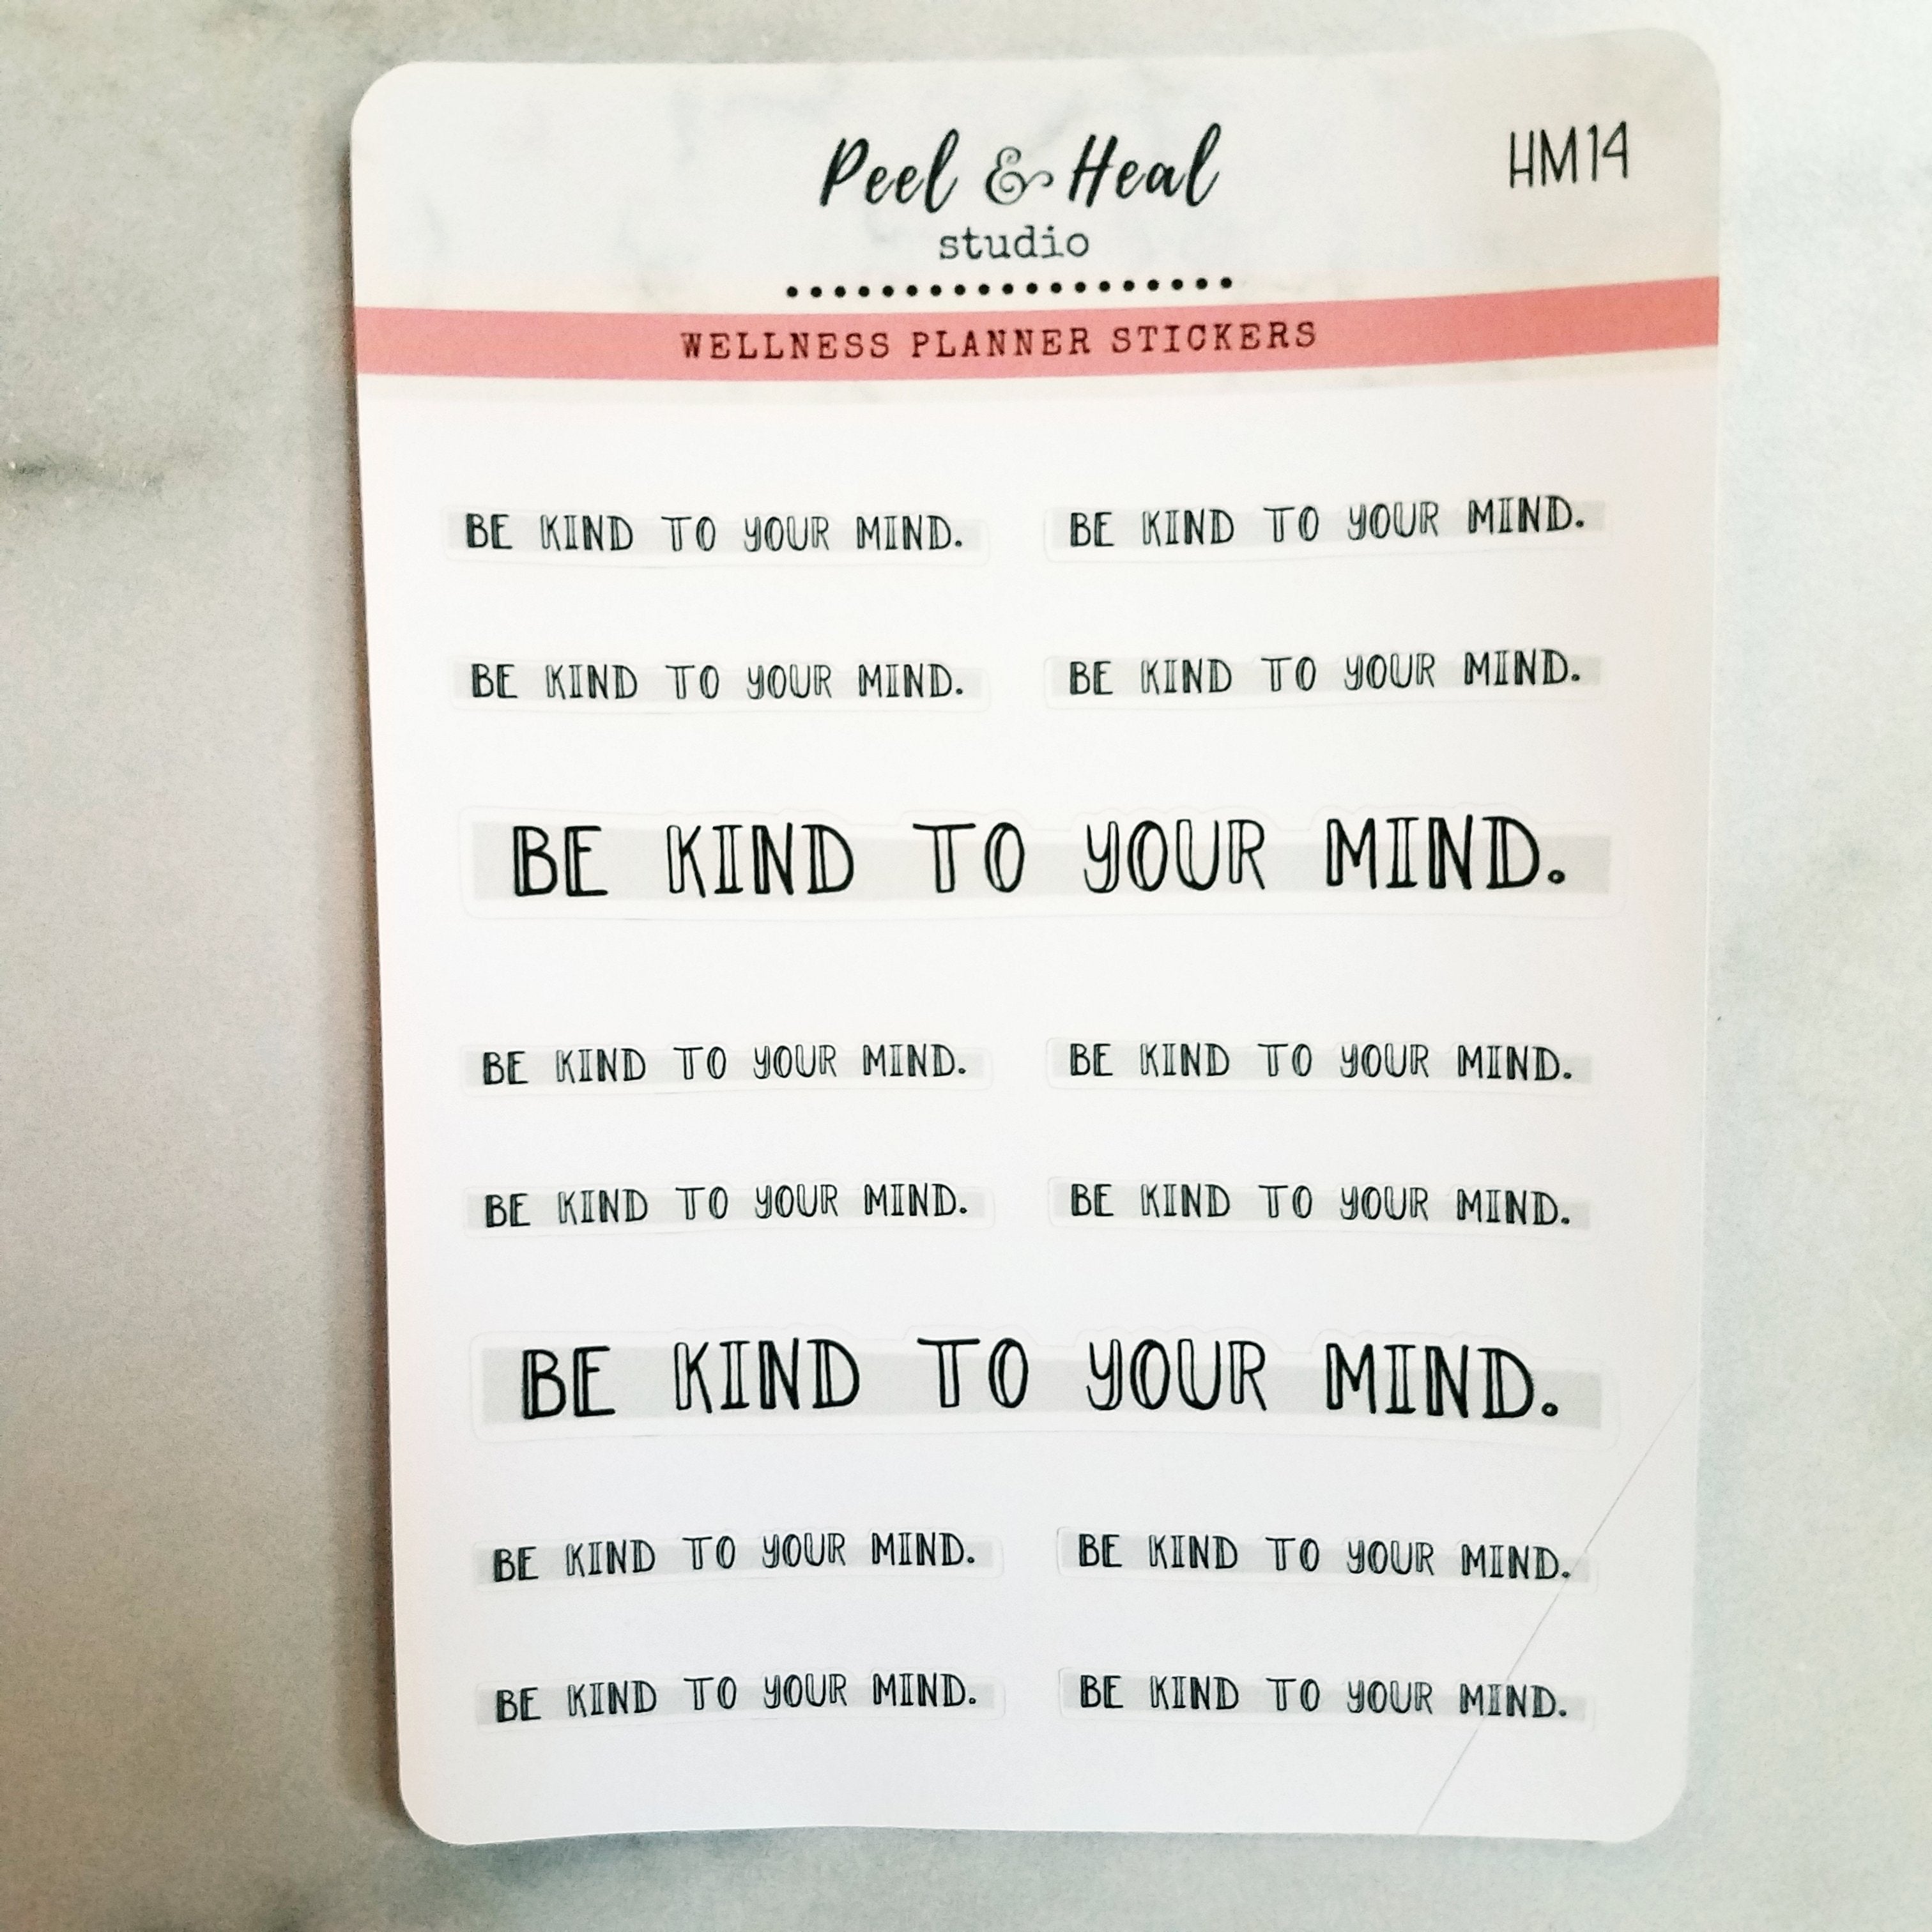 Peel & Heal
studio
HM14
WELLNESS PLANNER STICKERS
BE KIND TO YOUR MIND. BE KIND TO YOUR MIND.
BE KIND TO YOUR MIND. BE KIND TO YOUR MIND.
BE KIND TO YOUR MIND.
BE KIND TO YOUR MIND. BE KIND TO YOUR MIND.
BE KIND TO YOUR MIND. BE KIND TO YOUR MIND.
BE KIND TO YOUR MIND.
BE KIND TO YOUR MIND. BE KIND TO YOUR MIND.
BE KIND TO YOUR MIND. BE KIND TO YOUR MIND.